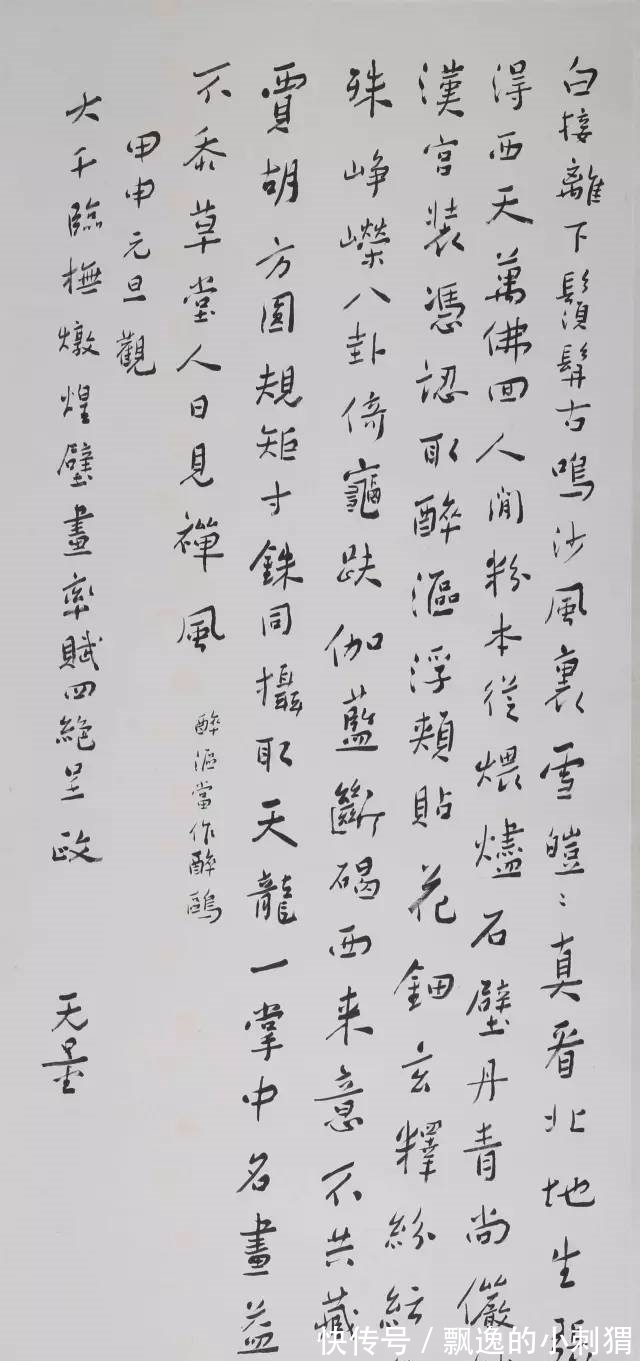 白接離下鬚髯古鳴沙風裏雪皚〻真看北地生張
得西天萬佛回人間粉本從煨燼石壁丹青尚儼
漢宮裝憑認取醉漚浮頰貼花鈿玄釋紛紜
殊崢嶸八卦倚龜趺伽藍斷碣西来意不共藏
賈胡方圓規矩寸銖同攝取天龍一掌中名畫益
不忝草堂人日見禪風
醉漚當作醉鷗
甲申元旦觀
大千臨橅燉煌壁畫率賦四絕呈政 无量
快传号 / 飘逸的小刺猬